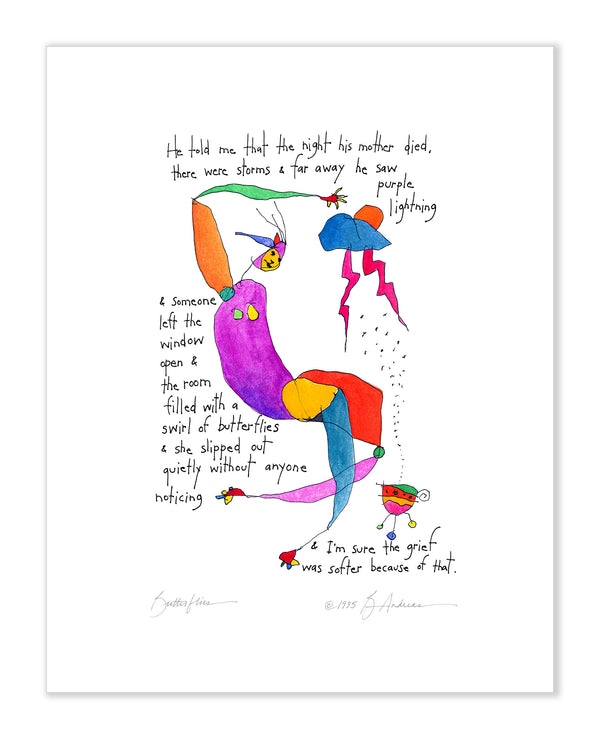 He told me that the night his mother died,
there were storms & far away he saw
purple
lightning
& someone
left the
window
open &
the room
filled with a
swirl of butterflies
& she slipped out
quietly without anyone
noticing
& I'm sure the grief
was softer because of that.
Butterflies
© 1995 B Andreas